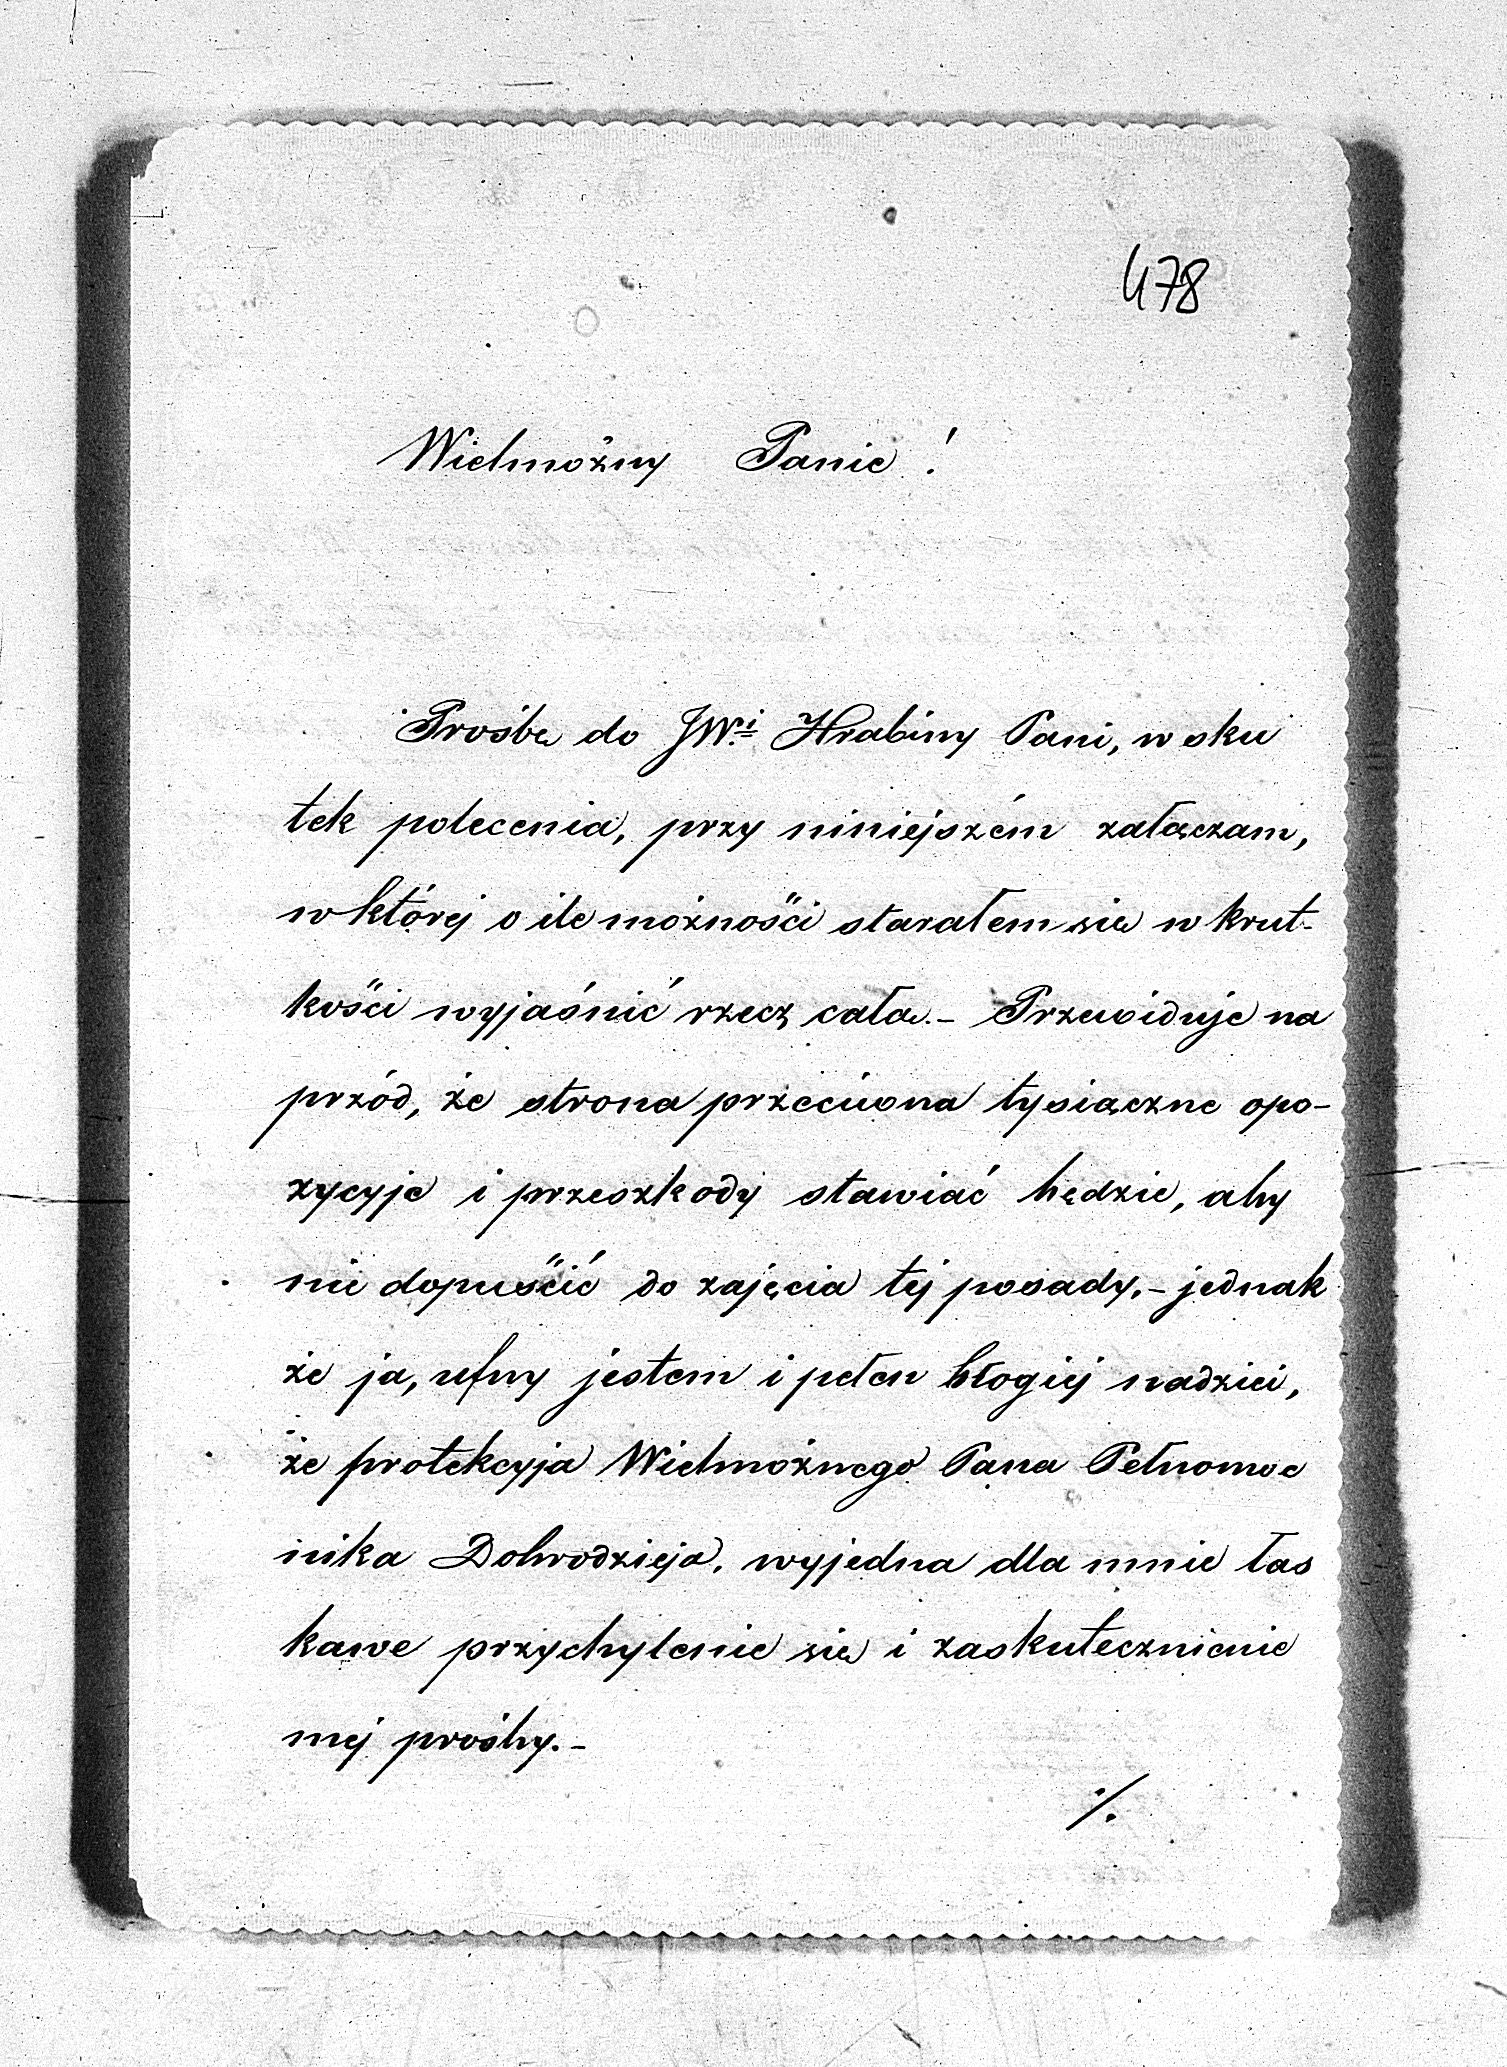 478
Wielmożny Panie!
Prośbę do JW.i Hrabiny Pani, w sku
tek polecenia, przy niniejszém załączam,
w której o ile możności starałem się w krut-
kości wyjaśnić rzecz całą.- Przewiduję na
przód, że strona przeciwna tysiączne opo-
zycyje i przeszkody stawiać będzie, aby
nie dopuścić do zajęcia tej posady.- jednak
że ja, ufny jestem i pełen błogiej nadziei,
że protekcyja Wielmożnego Pana Pełnomoc
nika Dobrodzieja, wyjedna dla mnie łas
kawe przychylenie się i zaskutecznienie
mej prośby.-
./.